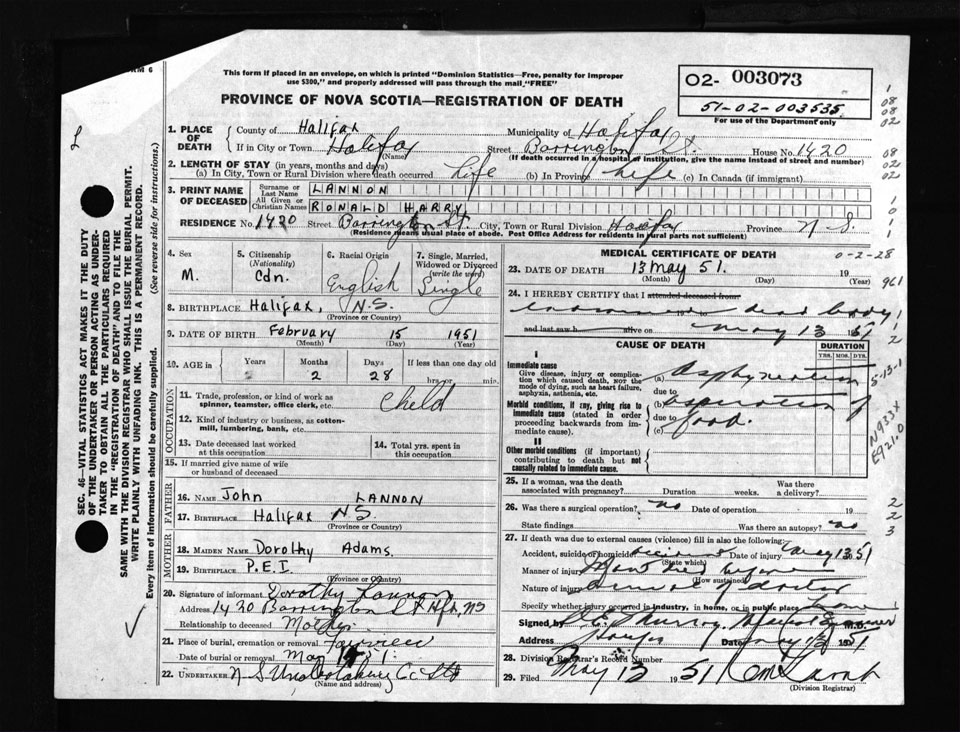 RM 6
This form if placed in an envelope, on which is printed "Dominion Statistics—Free, penalty for improper
use $300," and properly addressed will pass through the mail, "FREE"
PROVINCE OF NOVA SCOTIA—REGISTRATION OF DEATH
02- 003073
51-02-003535
For use of the Department only
1. PLACE OF DEATH
County of Halifax Municipality of Halifax
If in City or Town Halifax (Name) Street Barrington St. House No. 1420
(If death occurred in a hospital or institution, give the name instead of street and number)
2. LENGTH OF STAY (in years, months and days)
(a) In City, Town or Rural Division where death occurred Life (b) In Province Life (c) In Canada (if immigrant)
3. PRINT NAME OF DECEASED
Surname or Last Name LANNON
All Given or Christian Names RONALD HARRY
RESIDENCE No. 1420 Street Barrington St. City, Town or Rural Division Halifax Province N S.
(Residence means usual place of abode. Post Office Address for residents in rural parts not sufficient)
4. Sex M.
5. Citizenship (Nationality) Cdn.
6. Racial Origin English
7. Single, Married, Widowed or Divorced (write the word) Single
8. BIRTHPLACE Halifax, N.S.
(Province or Country)
9. DATE OF BIRTH February 15 1951
(Month) (Day) (Year)
10. AGE in Years Months 2 Days 28 If less than one day old hrs. or min.
OCCUPATION
11. Trade, profession, or kind of work as spinner, teamster, office clerk, etc. Child
12. Kind of industry or business, as cotton-mill, lumbering, bank, etc.
13. Date deceased last worked at this occupation
14. Total yrs. spent in this occupation
15. If married give name of wife or husband of deceased
FATHER
16. NAME John LANNON
17. BIRTHPLACE Halifax NS.
(Province or Country)
MOTHER
18. MAIDEN NAME Dorothy Adams.
19. BIRTHPLACE P.E.I.
(Province or Country)
20. Signature of informant Dorothy Lannon
Address 1420 Barrington St Hfx, NS
Relationship to deceased Mother
21. Place of burial, cremation or removal Fairview
Date of burial or removal May 51.
22. UNDERTAKER N S Undertaking Co Ltd
(Name and address)
MEDICAL CERTIFICATE OF DEATH
0-2-28
23. DATE OF DEATH 13 May 51. 19
(Month) (Day) (Year)
24. I HEREBY CERTIFY that I attended deceased from
examined dead body
and last saw h alive on May 13 1951
CAUSE OF DEATH
DURATION
YRS. MOS. DYS.
I
Immediate cause
Give disease, injury or complication which caused death, NOT the mode of dying, such as heart failure, asphyxia, asthenia, etc.
(a) Asphyxiation
due to
Morbid conditions, if any, giving rise to immediate cause (stated in order proceeding backwards from immediate cause).
(b) aspiration of
due to
(c) food.
II
Other morbid conditions (if important) contributing to death but not causally related to immediate cause.
25. If a woman, was the death associated with pregnancy? Duration weeks. Was there a delivery?
26. Was there a surgical operation? no Date of operation 19
State findings Was there an autopsy? no
27. If death was due to external causes (violence) fill in also the following:
Accident, suicide or homicide accident (State which) Date of injury May 13 51
Manner of injury
(How sustained)
Nature of injury arrival of doctor
Specify whether injury occurred in industry, in home, or in public place home
Signed by Murray, Medical Examiner M.D.
Address Date May 13 1951
28. Division Registrar's Record Number
29. Filed May 13 1951
(Division Registrar)
SEC. 46—VITAL STATISTICS ACT MAKES IT THE DUTY
OF THE UNDERTAKER OR PERSON ACTING AS UNDER-
TAKER TO OBTAIN ALL THE PARTICULARS REQUIRED
IN THE "REGISTRATION OF DEATH" AND TO FILE THE
SAME WITH THE DIVISION REGISTRAR WHO SHALL ISSUE THE BURIAL PERMIT.
WRITE PLAINLY WITH UNFADING INK. THIS IS A PERMANENT RECORD.
Every item of information should be carefully supplied. (See reverse side for instructions.)
1
08
08
02
08
02
02
1
0
1
1
961
1
2
5-13-1
N933X
E921.0
2
2
3